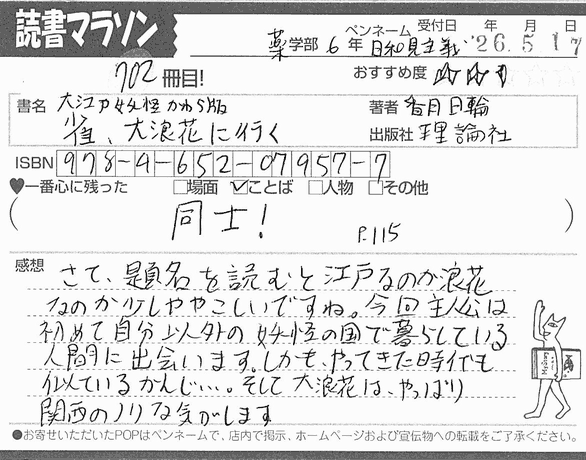 読書マラソン
薬学部 6年 ペンネーム 日和見主義 受付日 '26年 5月 17日
702冊目! おすすめ度 ☆☆☆
書名 大江戸妖怪かわら版
雀、大浪花に行く
著者 香月日輪
出版社 理論社
ISBN 978-4-652-07957-7
♥一番心に残った □場面 ☑ことば □人物 □その他
(同士! P.115)
感想 さて、題名を読むと江戸なのか浪花
なのか少しややこしいですね。今回主人公は
初めて自分以外の妖怪の国で暮らしている
人間に出会います。しかも、やってきた時代も
似ているかんじ…。そして大浪花は、やっぱり
関西のノリな気がします
●お寄せいただいたPOPはペンネームで、店内で掲示、ホームページおよび宣伝物への転載をご了承ください。